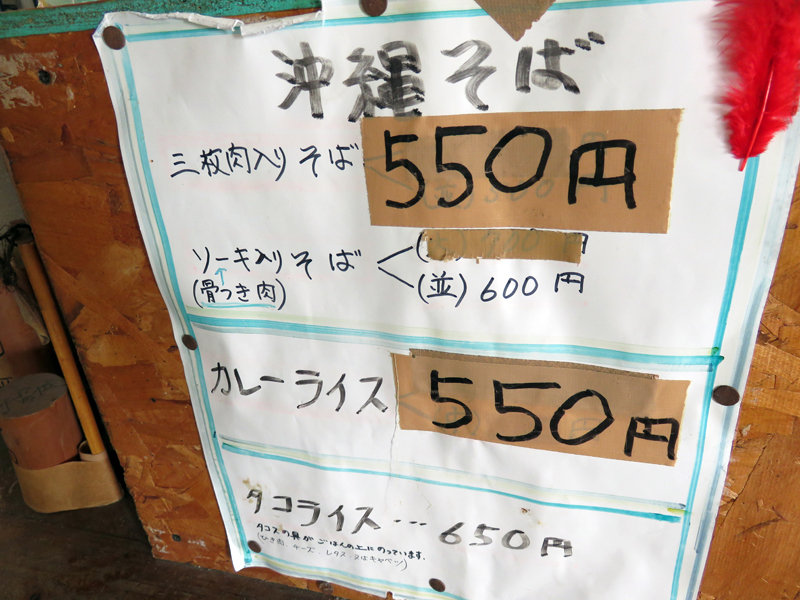 沖縄そば
三枚肉入りそば 550円
ソーキ入りそば
(骨つき肉)
(並) 600円
カレーライス 550円
タコライス … 650円
タコスの具がごはんの上にのっています。
(ひき肉 チーズ レタス 又はキャベツ)